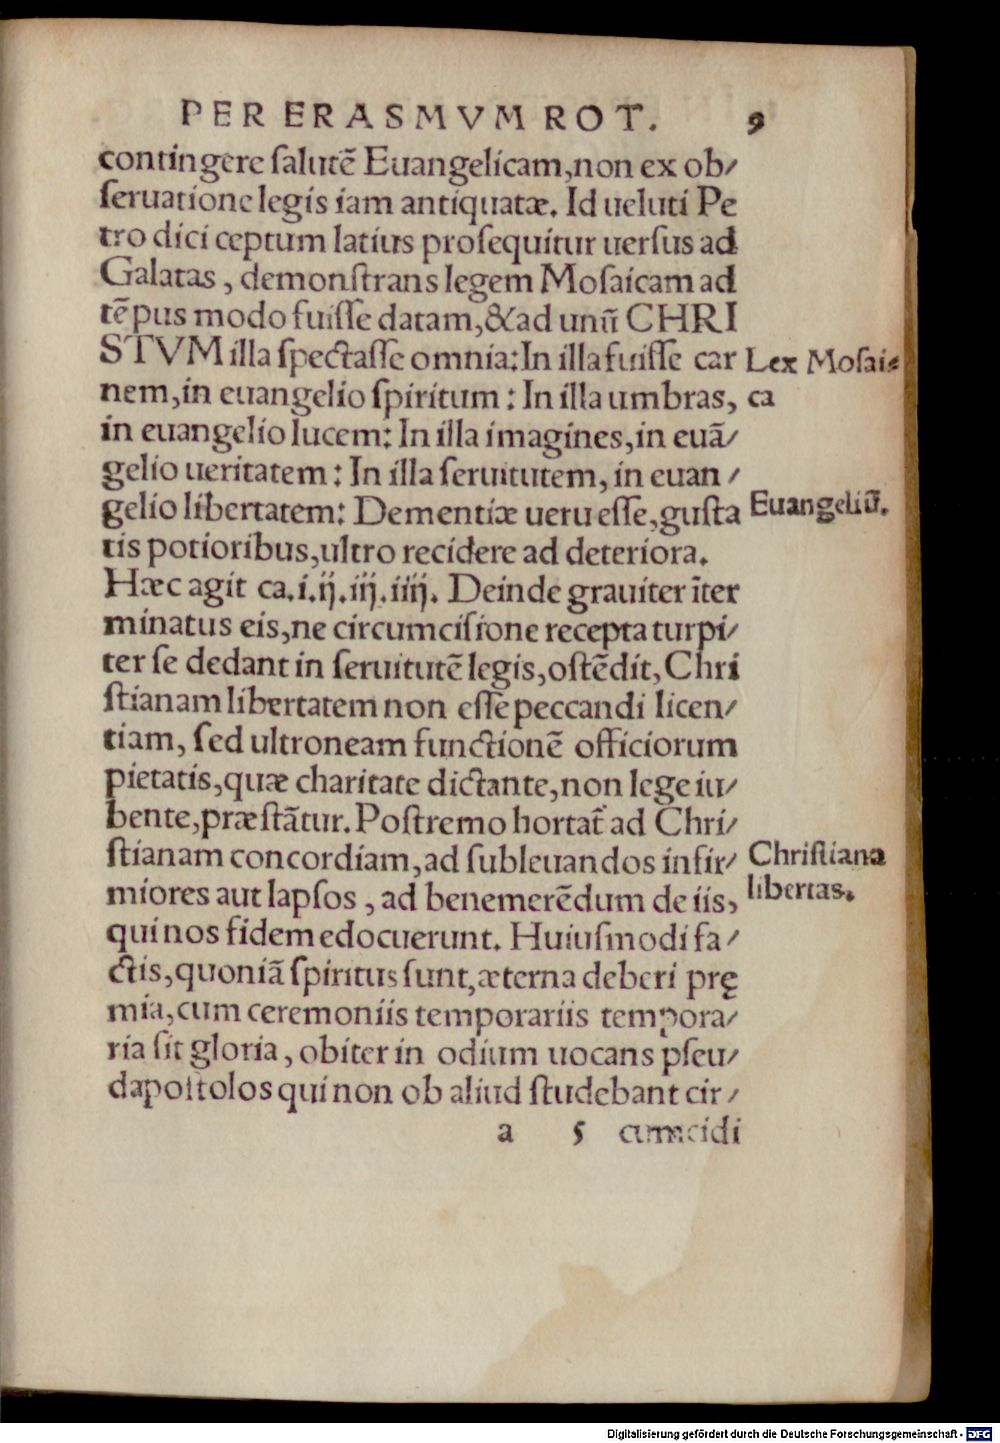 PER ERASMVM ROT. 9
contingere salutē Euangelicam, non ex ob/
seruatione legis iam antiquatæ. Id ueluti Pe
tro dici ceptum latius prosequitur uersus ad
Galatas, demonstrans legem Mosaicam ad
tēpus modo fuisse datam, & ad unū CHRI
STVM illa spectasse omnia: In illa fuisse car
Lex Mosai=
nem, in euangelio spiritum: In illa umbras,
ca
in euangelio lucem: In illa imagines, in euā/
gelio ueritatem: In illa seruitutem, in euan/
gelio libertatem: Dementiæ ueru esse, gusta
Euangeliū.
tis potioribus, ultro recidere ad deteriora.
Hæc agit ca. i. ij. iij. iiij. Deinde grauiter īter
minatus eis, ne circumcisione recepta turpi/
ter se dedant in seruitutē legis, ostēdit, Chri
stianam libertatem non esse peccandi licen/
tiam, sed ultroneam functionē officiorum
pietatis, quæ charitate dictante, non lege iu/
bente, præstātur. Postremo hortat̃ ad Chri/
stianam concordiam, ad subleuandos infir/
Christiana
miores aut lapsos, ad benemerēdum de iis,
libertas.
qui nos fidem edocuerunt. Huiusmodi fa/
ctis, quoniā spiritus sunt, æterna deberi prę
mia, cum ceremoniis temporariis tempora/
ria sit gloria, obiter in odium uocans pseu/
dapostolos qui non ob aliud studebant cir/
a 5 cumcidi
Digitalisierung gefördert durch die Deutsche Forschungsgemeinschaft - DFG